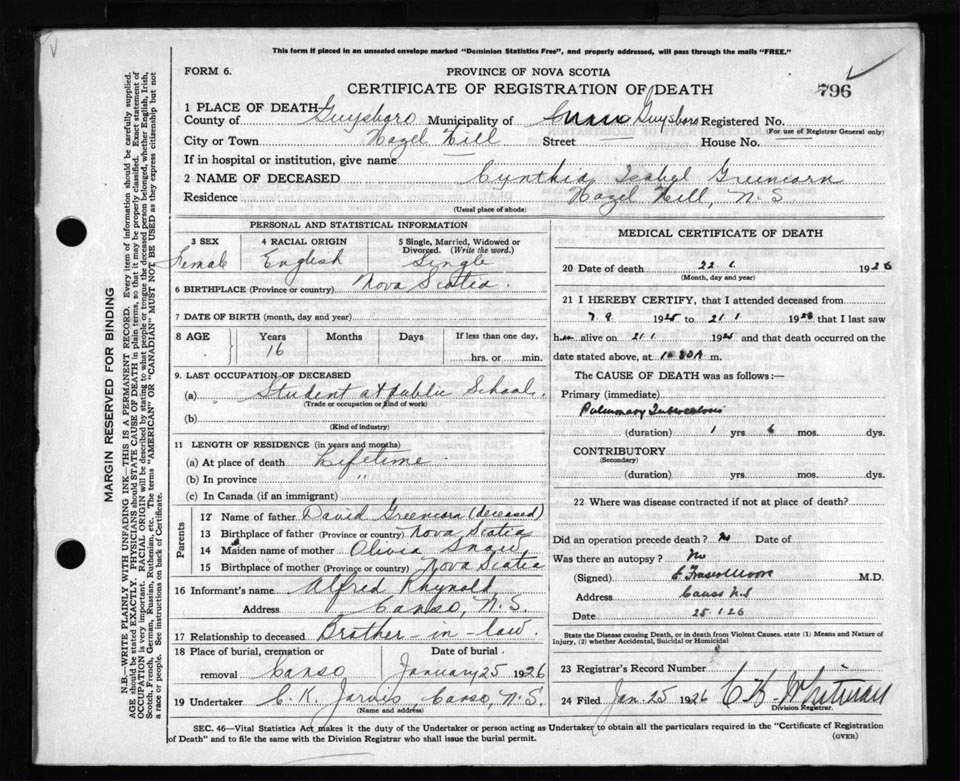 This form if placed in an unsealed envelope marked "Dominion Statistics Free", and properly addressed, will pass through the mails "FREE."
FORM 6.
PROVINCE OF NOVA SCOTIA
796
CERTIFICATE OF REGISTRATION OF DEATH
1 PLACE OF DEATH
County of Guysboro Municipality of Guysboro Registered No.
(For use of Registrar General only)
City or Town Hazel Hill Street House No.
If in hospital or institution, give name
2 NAME OF DECEASED Cynthia Isabel Greencorn
Residence Hazel Hill, N.S
(Usual place of abode)
PERSONAL AND STATISTICAL INFORMATION
3 SEX
Female
4 RACIAL ORIGIN
English
5 Single, Married, Widowed or
Divorced. (Write the word.)
Single
6 BIRTHPLACE (Province or country) Nova Scotia.
7 DATE OF BIRTH (month, day and year)
8 AGE Years Months Days If less than one day,
16
hrs. or min.
9. LAST OCCUPATION OF DECEASED
(a) Student at public School.
(Trade or occupation or kind of work)
(b)
(Kind of industry)
11 LENGTH OF RESIDENCE (in years and months)
(a) At place of death Lifetime
(b) In province "
(c) In Canada (if an immigrant)
Parents
12 Name of father David Greencorn (deceased)
13 Birthplace of father (Province or country) Nova Scotia
14 Maiden name of mother Olivia Snow
15 Birthplace of mother (Province or country) Nova Scotia
16 Informant's name Alfred Raynold
Address Canso, N.S.
17 Relationship to deceased Brother-in-law.
18 Place of burial, cremation or Date of burial
removal Canso January 25 1926
19 Undertaker C. K. Jarvis, Canso, N.S.
(Name and address)
MEDICAL CERTIFICATE OF DEATH
20 Date of death 22.1 1926
(Month, day and year)
21 I HEREBY CERTIFY, that I attended deceased from
7.9 1925 to 21.1 1926 that I last saw
her alive on 21.1 1926 and that death occurred on the
date stated above, at 10.30A m.
The CAUSE OF DEATH was as follows:—
Primary (immediate)
Pulmonary Tuberculosis
(duration) 1 yrs 6 mos. dys.
CONTRIBUTORY
(Secondary)
(duration) yrs. mos. dys.
22 Where was disease contracted if not at place of death?
Did an operation precede death? no Date of
Was there an autopsy? No
(Signed) E Fraser Moore M.D.
Address Canso N.S
Date 25.1.26
State the Disease causing Death, or in death from Violent Causes. state (1) Means and Nature of
Injury, (2) whether Accidental, Suicidal or Homicidal
23 Registrar's Record Number
24 Filed Jan. 25 1926 C H Whitman
Division Registrar.
SEC. 46—Vital Statistics Act makes it the duty of the Undertaker or person acting as Undertaker to obtain all the particulars required in the "Certificate of Registration
of Death" and to file the same with the Division Registrar who shall issue the burial permit.
(OVER)
MARGIN RESERVED FOR BINDING
N.B.—WRITE PLAINLY WITH UNFADING INK—THIS IS A PERMANENT RECORD. Every item of information should be carefully supplied.
AGE should be stated EXACTLY. PHYSICIANS should STATE CAUSE OF DEATH in plain terms, so that it may be properly classified. Exact statement of
OCCUPATION is very important. RACIAL ORIGIN will be described by stating to what people or tongue the deceased person belonged, whether English, Irish,
Scotch, French, German, Russian, Ruthenian, etc. The terms "AMERICAN" OR "CANADIAN" MUST NOT BE USED as they express citizenship but not
a race or people. See instructions on back of Certificate.